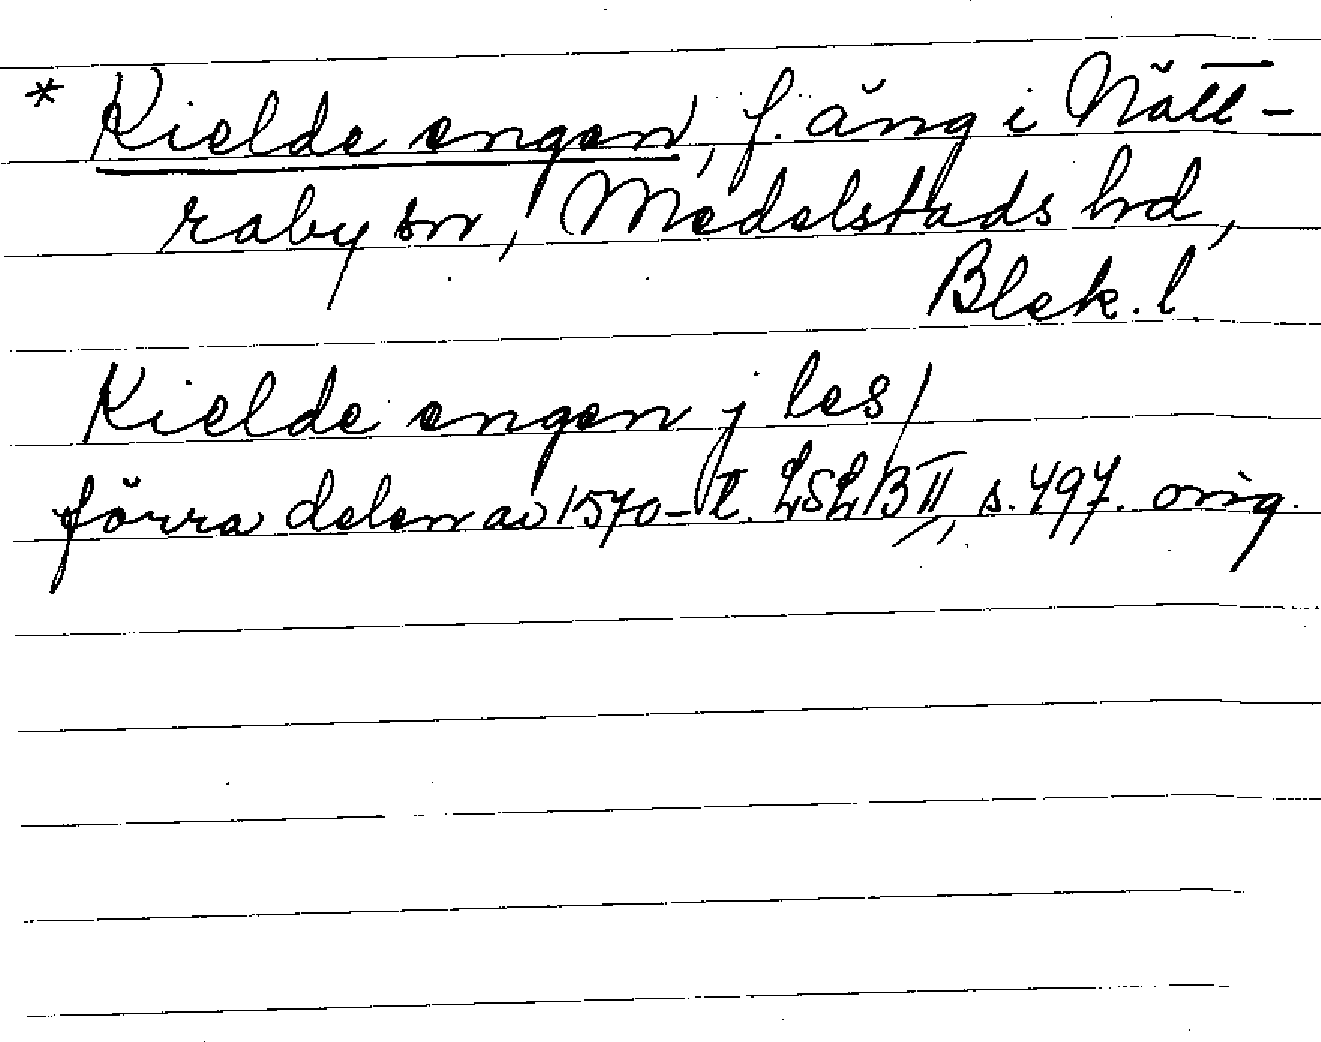 * Kielde engen, f. äng i Nätt-
raby sn, Medelstads hd,
Blek. l.
Kielde engen j les/
förra delen av 1570-t. LSLB II, s. 497. orig.